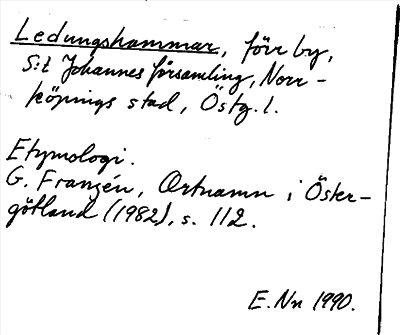 Ledungshammar, förr by,
S:t Johannes församling, Norr-
köpings stad, Östg. l.
Etymologi.
G. Franzén, Ortnamn i Öster-
götland (1982), s. 112.
E. Nn 1990.